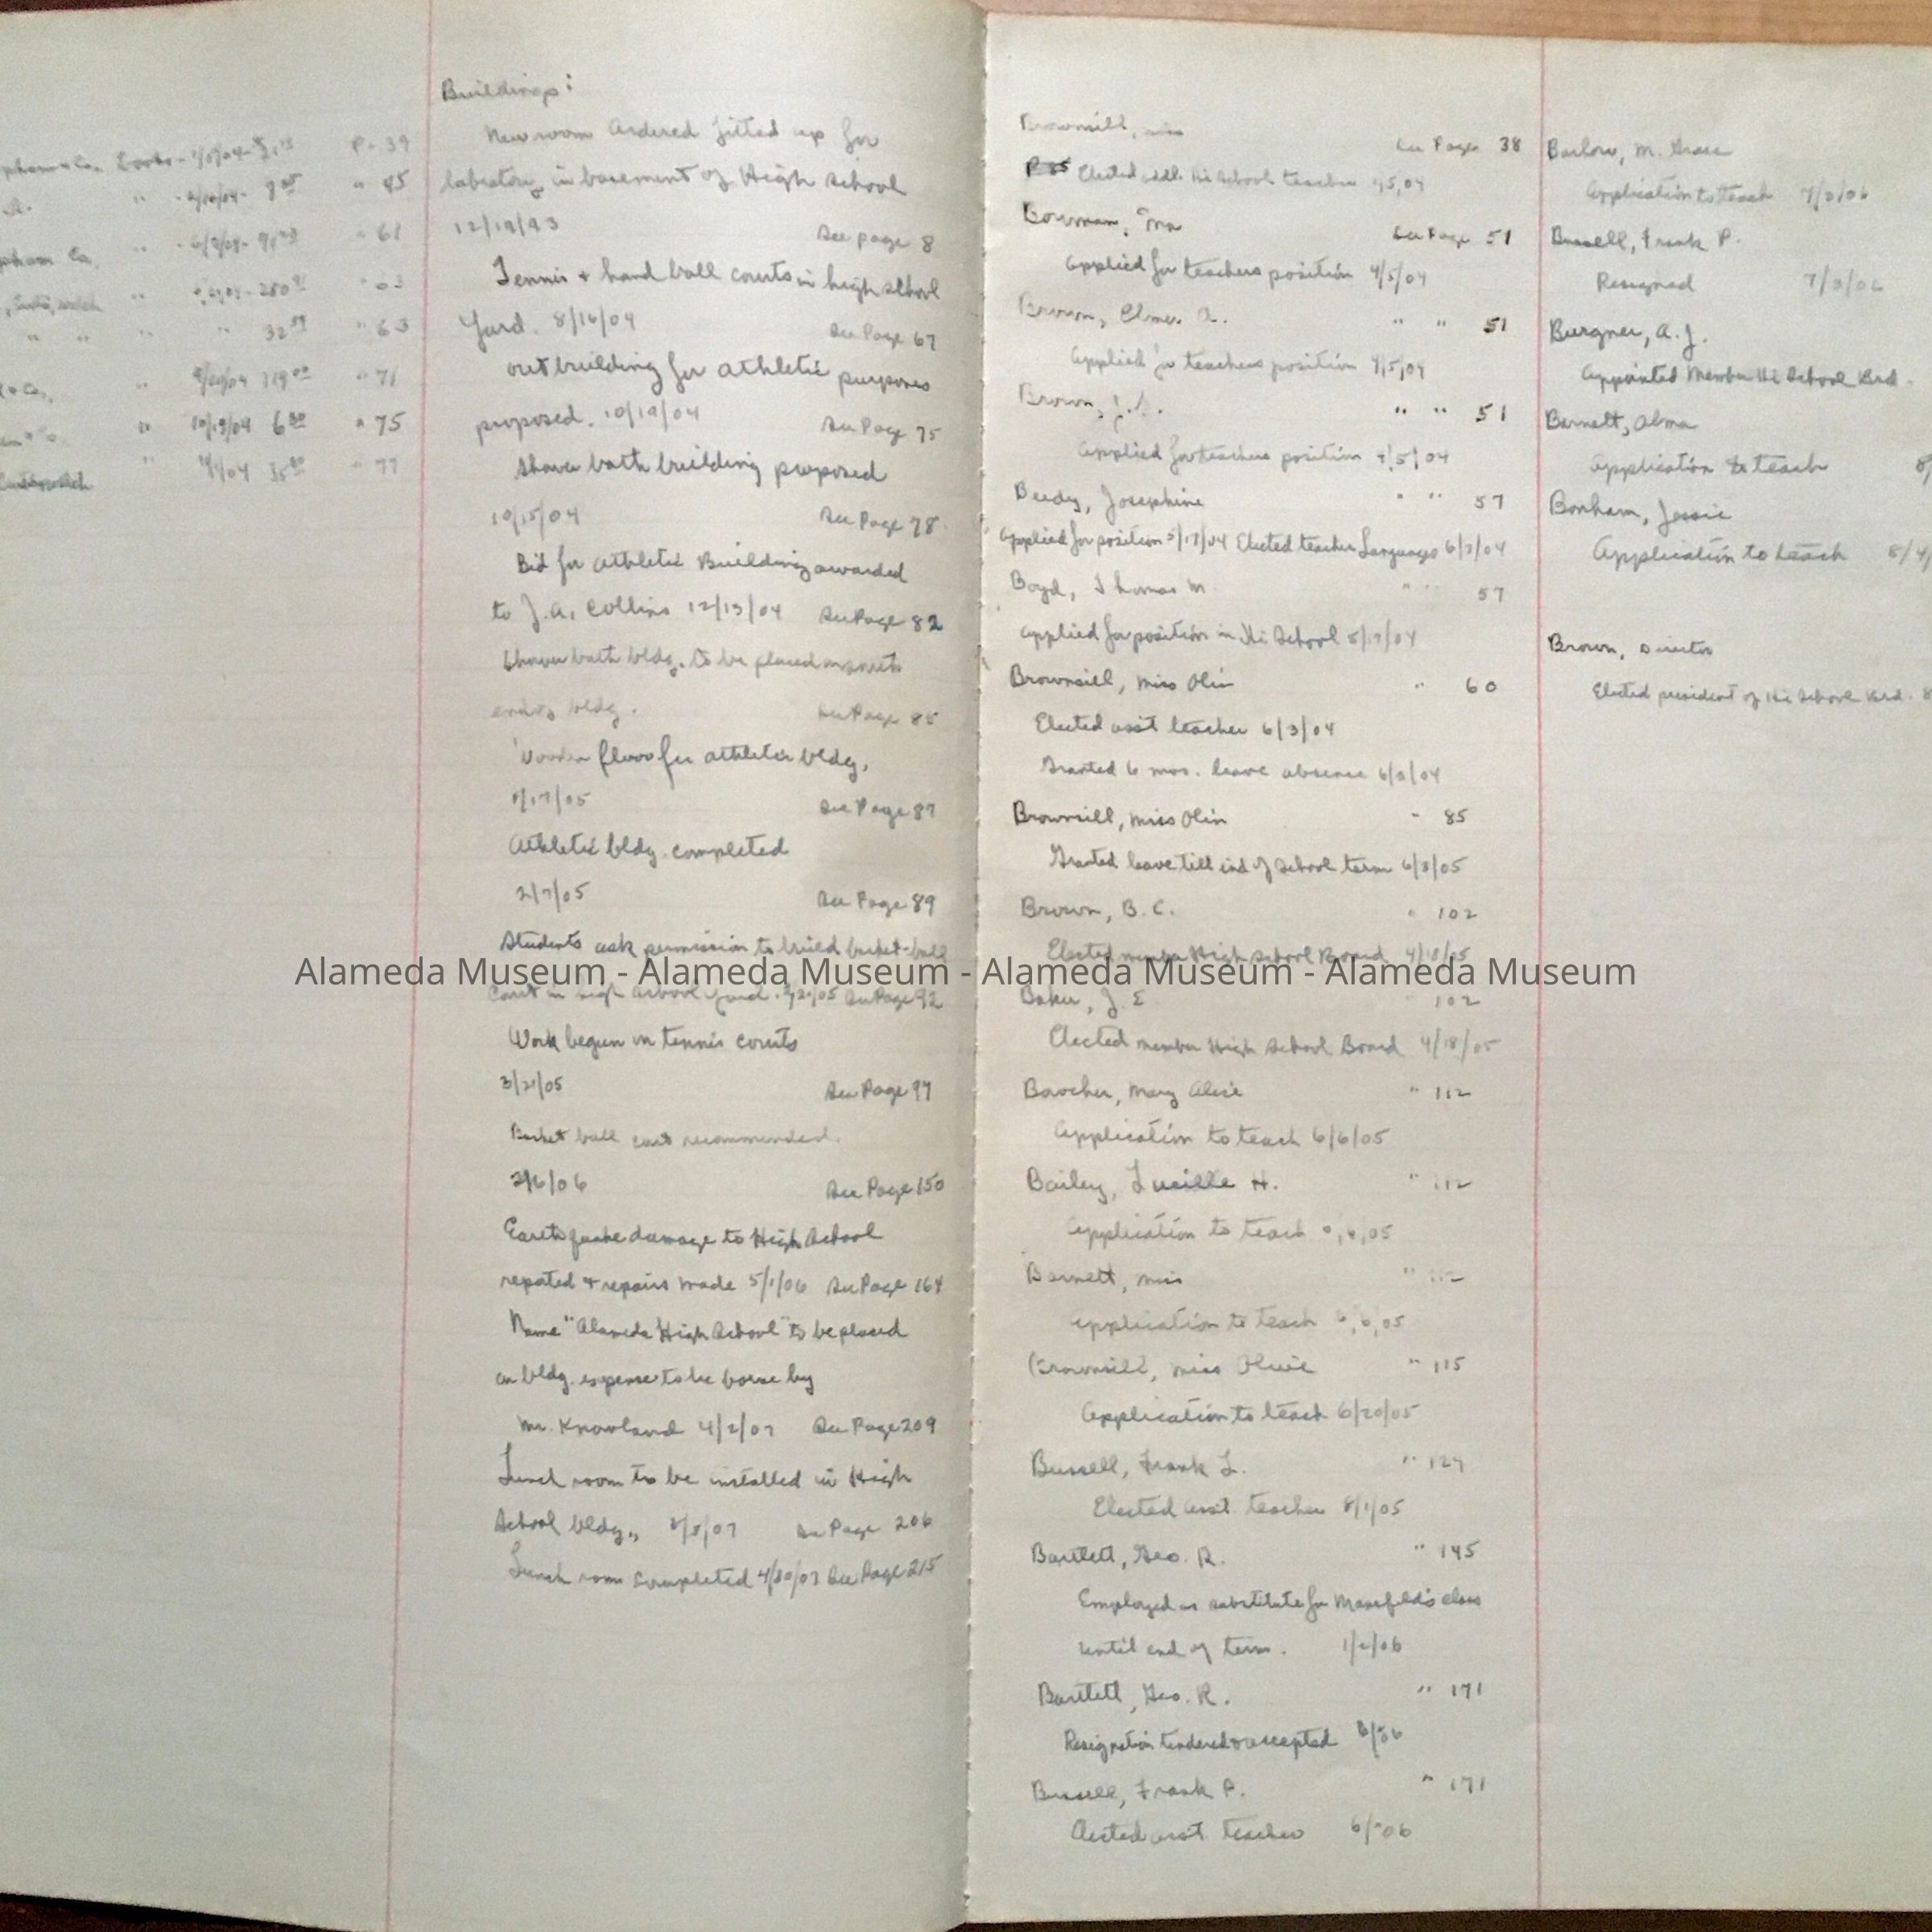 Books - P. 39
" 45
" 61
280
32 " 63
9/20/04 119 " 71
10/19/04 6 " 75
35 " 77
Buildings:
New room ordered fitted up for
labratory in basement of High School
12/19/93 See page 8
Tennis + hand ball courts in high school
Yard. 8/16/04 See Page 67
out building for athletic purposes
proposed. 10/19/04 See Page 75
Shower bath building proposed
10/15/04 See Page 78
Bid for athletic Building awarded
to J.A. Collins 12/13/04 See Page 82
Shower bath bldg. to be placed
end of bldg. See Page 85
Wooden floor for athletic bldg.
1/17/05 See Page 87
Athletic bldg. completed
2/7/05 See Page 89
Students ask permission to build basket-ball
Court in high school yard. See Page 92
Work begun on tennis courts
3/21/05 See Page 97
Basket ball court recommended.
2/6/06 See Page 150
Earthquake damage to High School
repoted + repairs made 5/1/06 See Page 164
Name "Alameda High School" to be placed
on bldg. expense to be borne by
Mr. Knowland 4/2/07 See Page 209
Lunch room to be installed in High
School bldg., See Page 206
Lunch room completed 4/30/07 See Page 215
Brownsill, miss See Page 38
Elected addl. Hi School teacher
Bowman, See Page 51
applied for teachers position 4/5/04
Brown, Elmer " " 51
applied for teachers position 4/5/04
Brown, " " 51
applied for teachers position 4/5/04
Beedy, Josephine " " 57
applied for position 5/17/04 Elected teacher Languages 6/3/04
Boyd, Thomas M. " " 57
applied for position in Hi School 5/17/04
Brownsill, miss Olin " 60
Elected asst teacher 6/3/04
Granted 6 mos. leave absence
Brownsill, miss Olin " 85
Granted leave till end of School term
Brown, B. C. " 102
Elected member High School Board 4/18/05
Baker, J. E. " 102
Elected member High School Board 4/18/05
Mary Alice " 112
application to teach 6/6/05
Bailey, Lucille H. " 112
application to teach
Barnett, miss " 112
application to teach 6/6/05
Brownsill, miss Olivie " 115
application to teach 6/20/05
Bussell, Frank L. " 124
Elected asst. teacher 8/1/05
Bartlett, Geo. R. " 145
Employed as substitute for Mansfield's class
until end of term. 1/2/06
Bartlett, Geo. R. " 171
Resignation tendered + accepted
Bussell, Frank P. " 171
Elected asst. teacher
Barlow, M. Grace
application to teach 7/3/06
Bussell, Frank P.
Resigned 7/3/06
Burgner, A. J.
appointed Member Hi School Brd.
Barnett, Alma
application to teach
Bonham, Jessie
application to teach
Brown, Director
Elected president of Hi School Brd.
Alameda Museum - Alameda Museum - Alameda Museum - Alameda Museum